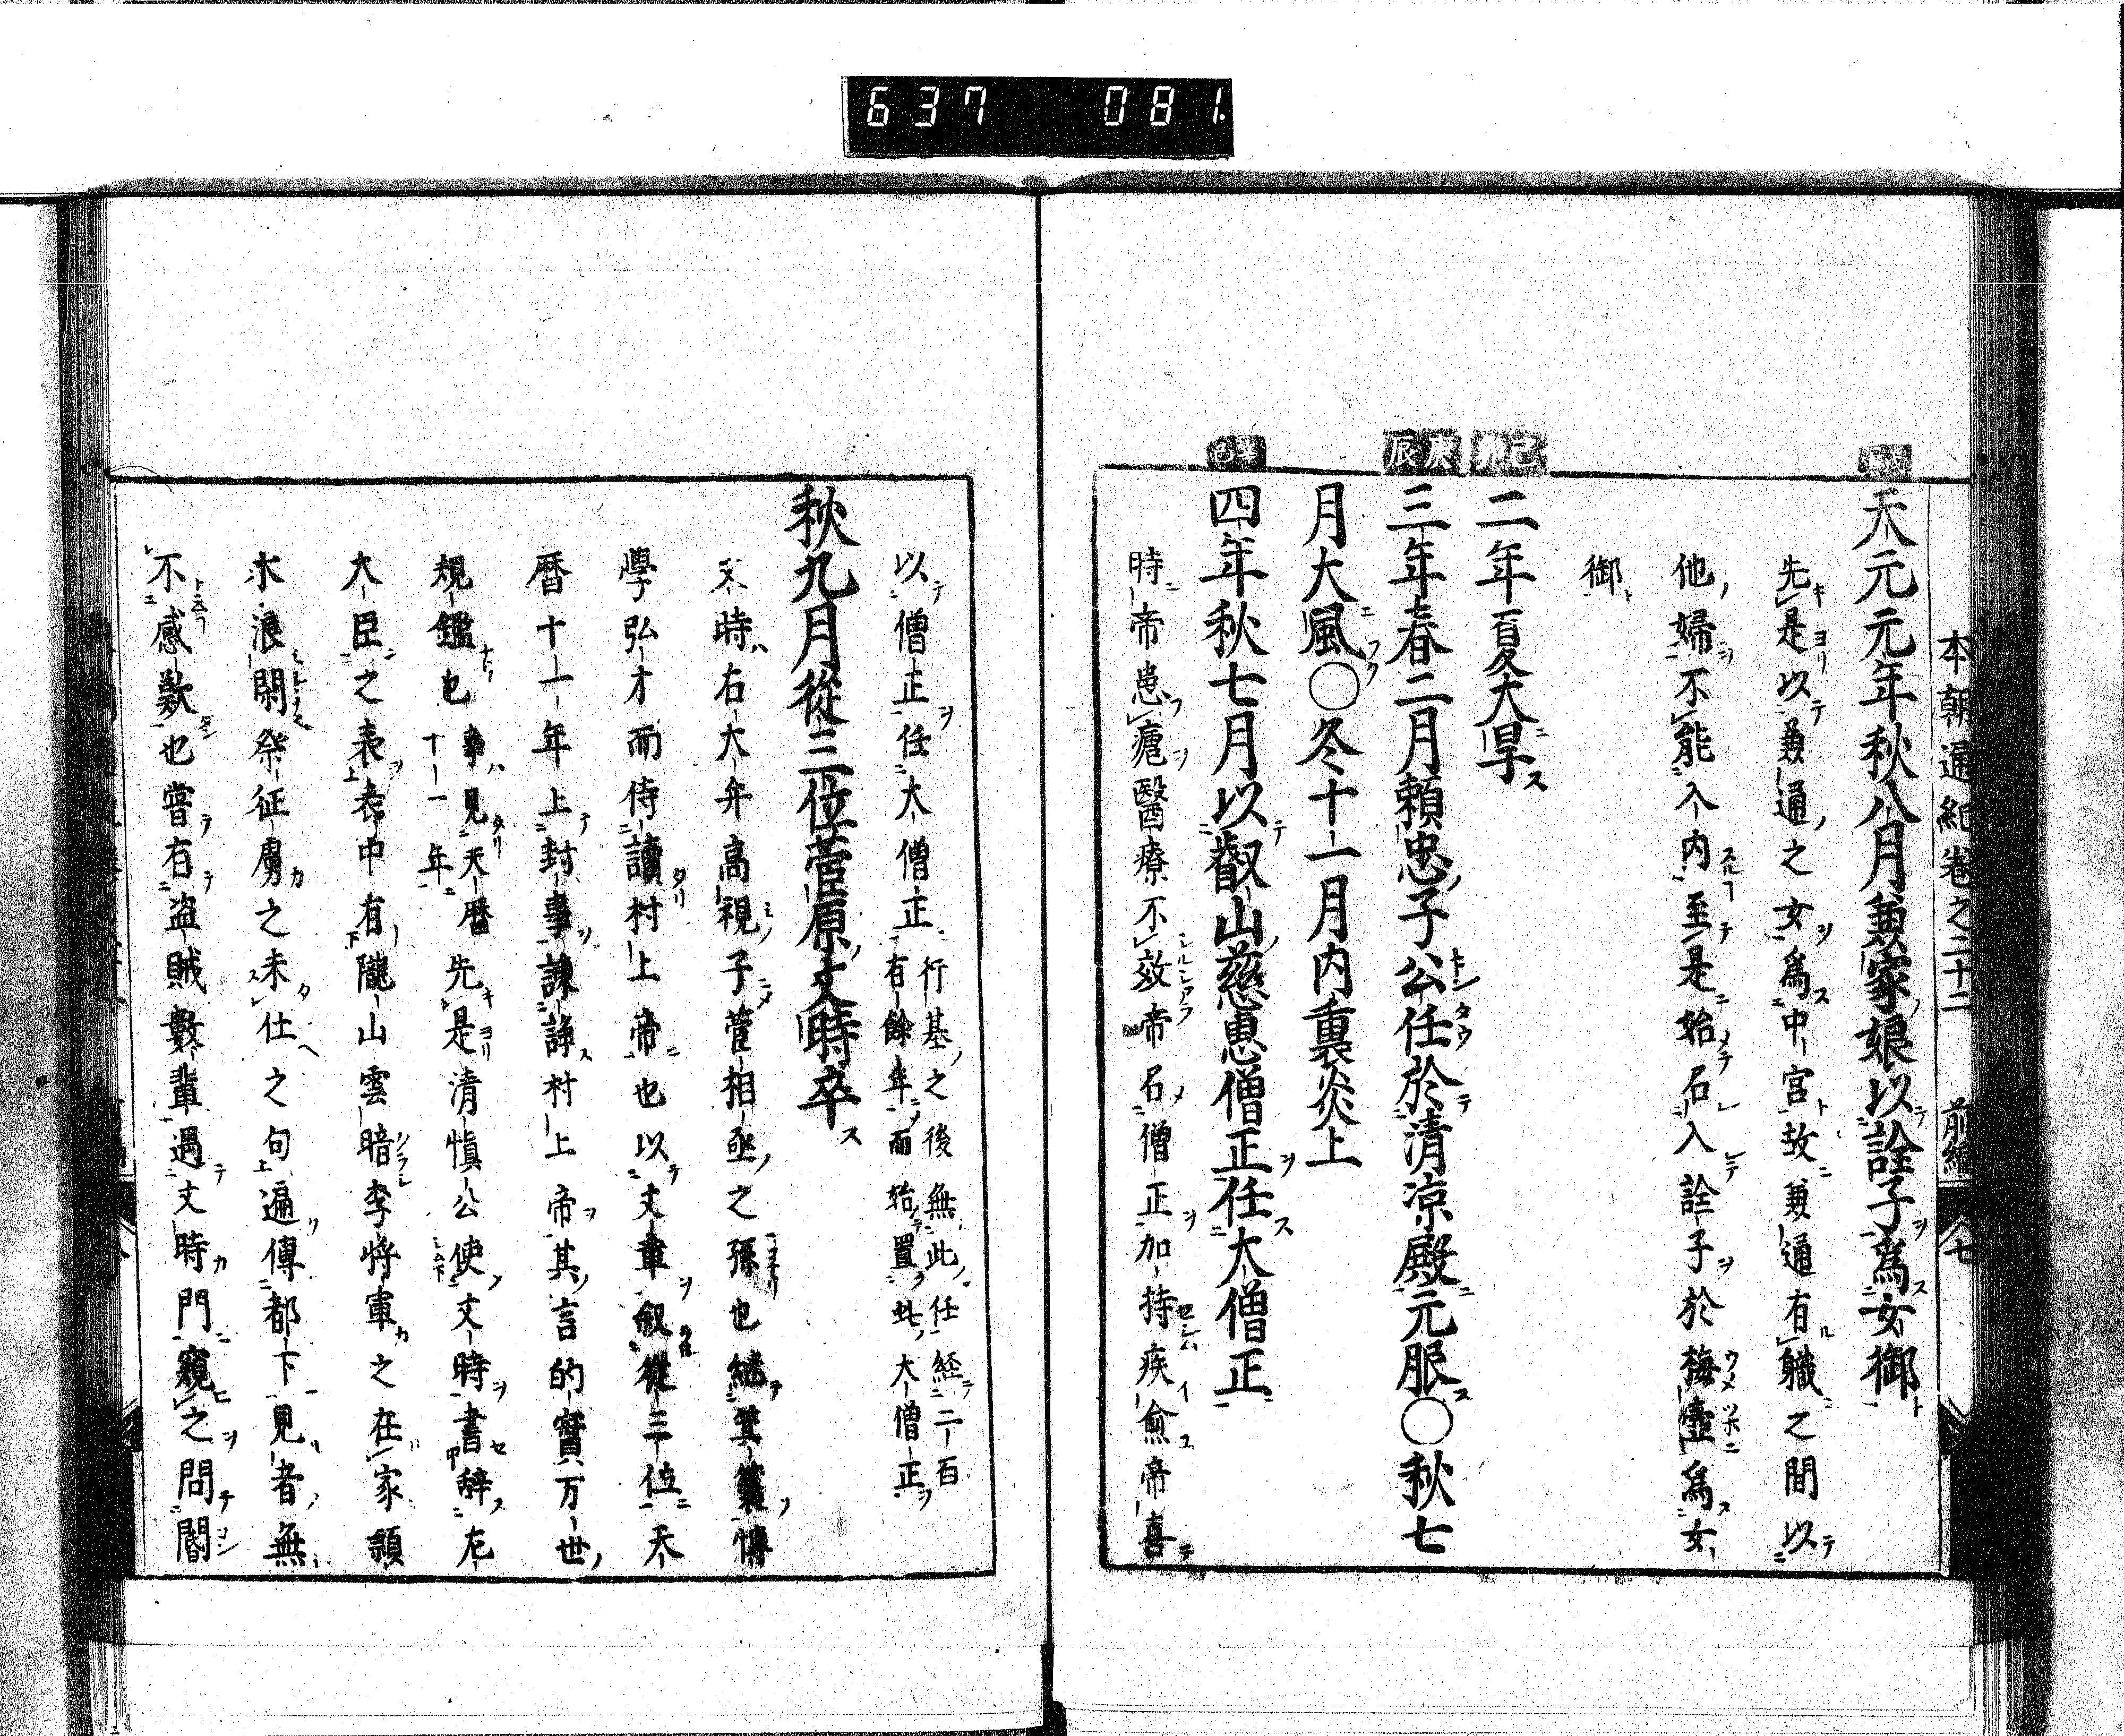 637 081
本朝通紀卷之二十二 前編 七
天元元年秋八月兼家娘以詮子爲女御
先是以兼通之女爲中宮故兼通有職之間以
他婦不能入内至是始召入詮子於梅壺爲女
御
己卯
二年夏大旱
庚辰
三年春二月頼忠子公任於清凉殿元服〇秋七
月大風〇冬十一月内裏炎上
辛巳
四年秋七月以叡山慈恵僧正任大僧正
時帝患瘧醫療不效帝召僧正加持疾愈帝喜
以僧正任大僧正行基之後無此任経二百
有餘年而始置此大僧正
秋九月從三位菅原文時卒
文時右大弁高視子菅相丞之孫也継箕裘博
學弘才而侍讀村上帝也以文章叙從三位天
暦十一年上封事諫諍村上帝其言的實万世
規鑑也事見天暦十一年先是清愼公使文時書辞左
大臣之表表中有隴山雲暗李将軍之在家頴
水浪閑祭征虜之未仕之句遍傳都下見者無
不感歎也嘗有盗賊數輩過文時門窺之問閽